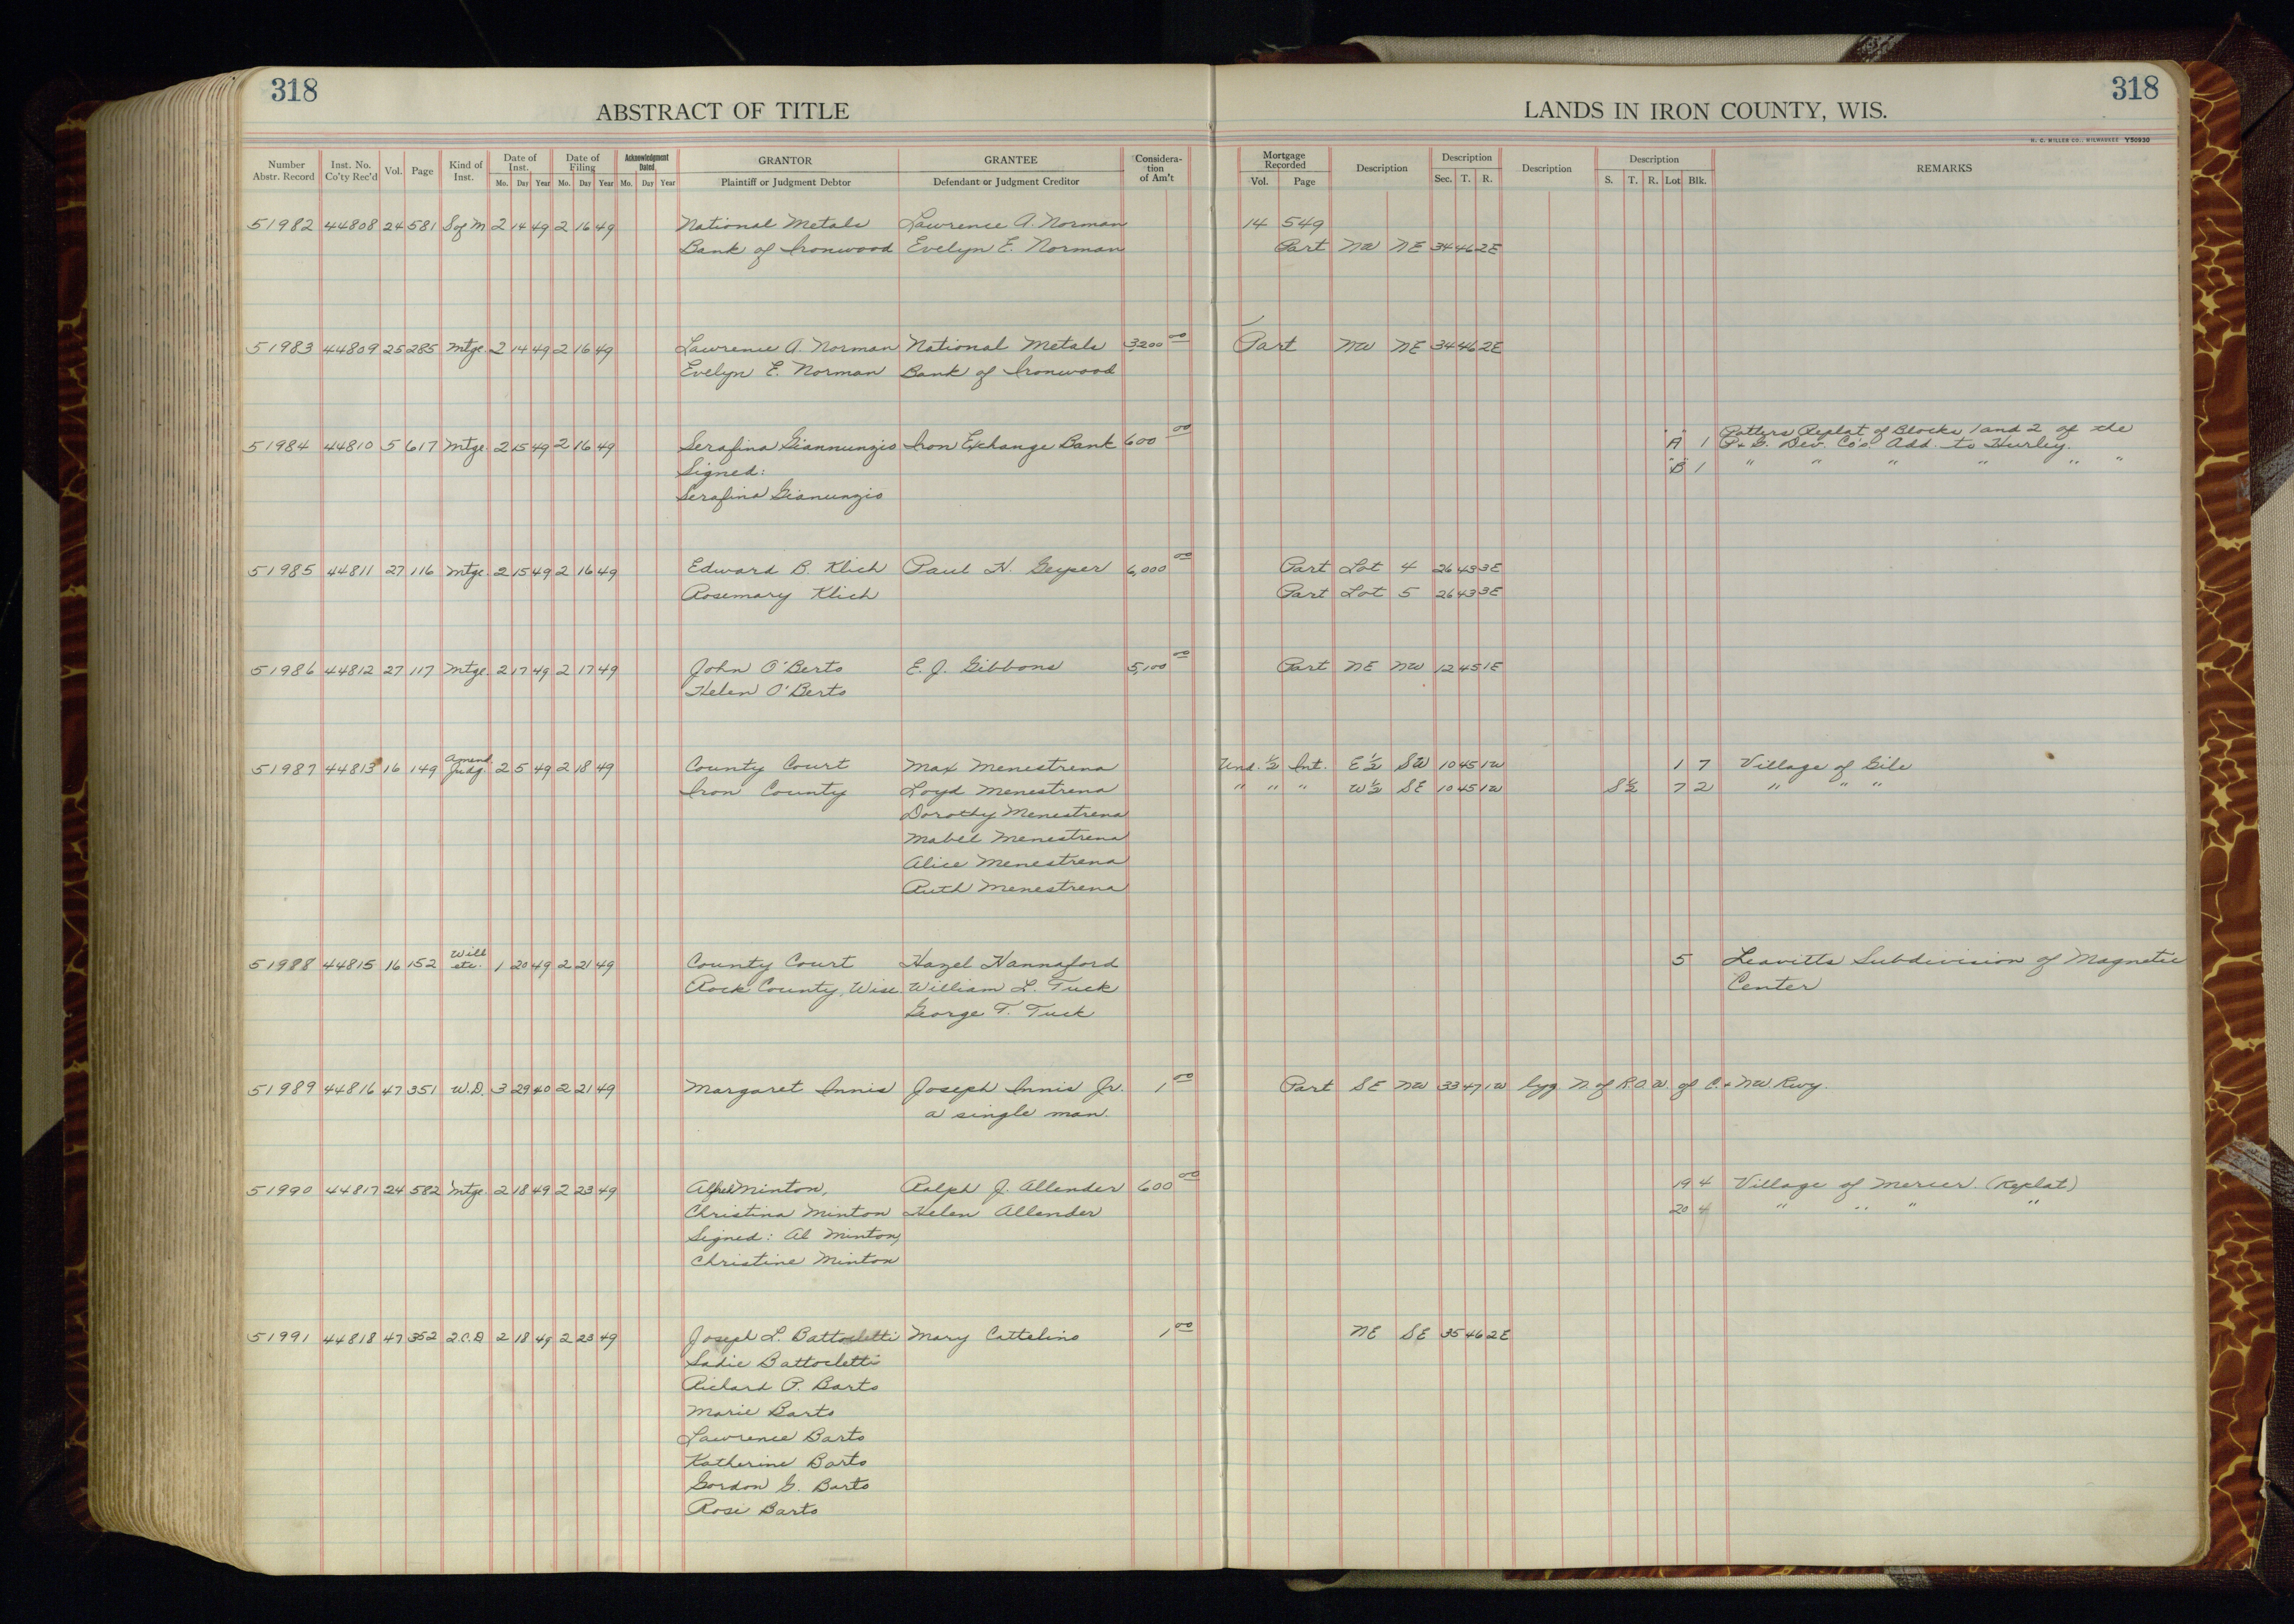 318
318
ABSTRACT OF TITLE
LANDS IN IRON COUNTY, WIS.
H. C. MILLER CO., MILWAUKEE Y50930
Number Abstr. Record Inst. No. Co'ty Rec'd Vol. Page Kind of Inst. Date of Inst. Mo. Day Year Date of Filing Mo. Day Year Acknowledgment Dated Mo. Day Year GRANTOR Plaintiff or Judgment Debtor GRANTEE Defendant or Judgment Creditor Considera-tion of Am't Mortgage Recorded Vol. Page Description Description Sec. T. R. Description Description S. T. R. Lot Blk. REMARKS
51982 44808 24 581 S of M 2 14 49 2 16 49 National Metals Lawrence A. Norman 14 549
Bank of Ironwood Evelyn E. Norman Part NW NE 34 46 2E
51983 44809 25 285 Mtge. 2 14 49 2 16 49 Lawrence A. Norman National Metals 3200 00 Part NW NE 34 46 2E
Evelyn E. Norman Bank of Ironwood
51984 44810 5 617 Mtge. 2 15 49 2 16 49 Serafina Giannunzio Iron Exchange Bank 600 00 "A" 1 Potters Replat of Blocks 1 and 2 of the
P. & G. Dev. Co's. Add. to Hurley.
Signed: "B" 1 " " " " " "
Serafina Gianunzio
51985 44811 27 116 Mtge. 2 15 49 2 16 49 Edward B. Klich Paul H. Geyser 6,000 00 Part Lot 4 26 43 3E
Rosemary Klich Part Lot 5 26 43 3E
51986 44812 27 117 Mtge. 2 17 49 2 17 49 John O'Berto E. J. Gibbons 5,100 00 Part NE NW 12 45 1E
Helen O'Berto
51987 44813 16 149 Amend. Judg. 2 5 49 2 18 49 County Court Max Menestrena Und. ½ Int. E½ SW 10 45 1W 1 7 Village of Gile
Iron County Loyd Menestrena " " " W½ SE 10 45 1W S½ 7 2 " " "
Dorothy Menestrena
Mabel Menestrena
Alice Menestrena
Ruth Menestrena
51988 44815 16 152 Will etc. 1 20 49 2 21 49 County Court Hazel Hannaford 5 Leavitts Subdivision of Magnetic
Rock County, Wisc. William L. Tuck Center
George T. Tuck
51989 44816 47 351 W.D. 3 29 40 2 21 49 Margaret Innis Joseph Innis Jr. 1 00 Part SE NW 33 47 1W lyg. N. of R.O.W. of C. & NW Rwy.
a single man.
51990 44817 24 582 Mtge. 2 18 49 2 23 49 Alfred Minton, Ralph J. Allender 600 00 19 4 Village of Mercer. (Replat)
Christina Minton Helen Allender 20 4 " " " "
Signed: Al Minton,
Christine Minton
51991 44818 47 352 2.C.D. 2 18 49 2 23 49 Joseph L. Battocletti Mary Cattelino 1 00 NE SE 35 46 2E
Sadie Battocletti
Richard P. Barto
Marie Barto
Lawrence Barto
Katherine Barto
Gordon G. Barto
Rose Barto